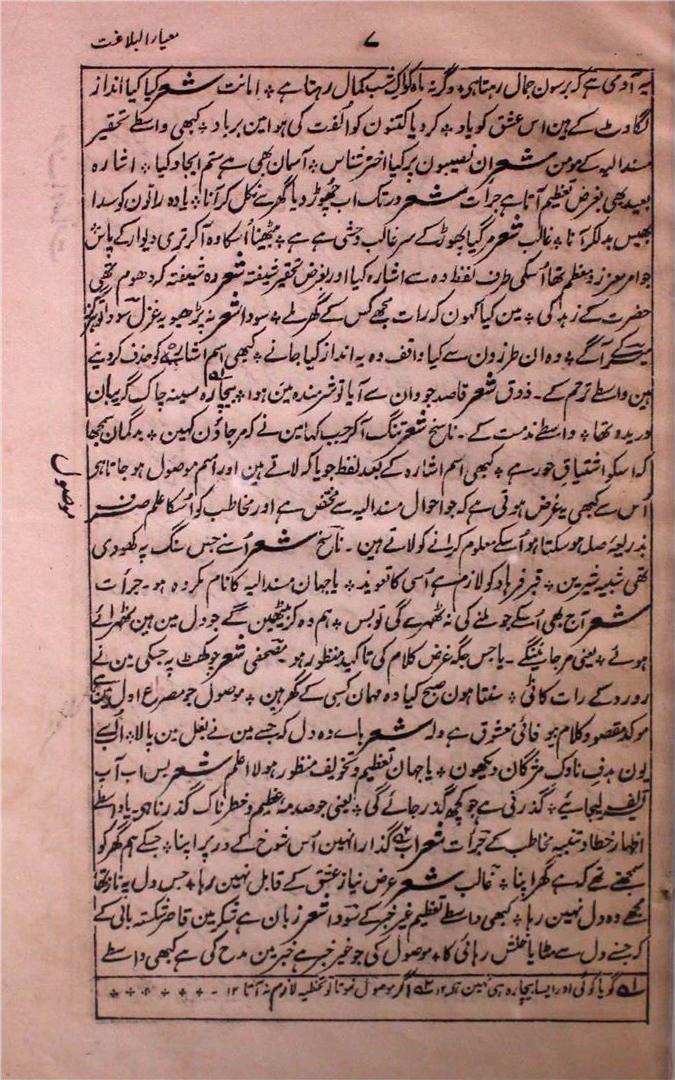 معیار البلاغت
۷
یہ آدمی ہے کہ برسون جمال رہتا ہی ٭ وگرنہ ماہ کو اک شب کمال رہتا ہے ٭ امانت شعر کیا کیا انداز
لگاوٹ کے ہین اس عشق کو یاد ٭ کر دیا کتنون کو الفت کی ہوا مین برباد ٭ کبھی واسطے تحقیر
مسندالیہ کے مومن شعر ان نصیبون پر کیا اختر شناس ٭ آسمان بھی ہے ستم ایجاد کیا ٭ اشارہ
بعید بھی بغرض تعظیم آتا ہے جرأت شعر ور تک اب چھوڑ دیا گھر سے نکل کر آنا ٭ یا وہ راتون کو سدا
بھیس بدلکر آنا ٭ غالب شعر مر گیا پھوڑ کے سر غالب وحشی ہے ہے ٭ بیٹھنا اسکا وہ آکر تری دیوار کے پاس
جو امر معزز و معظم تھا اُسکی طرف لفظ وہ سے اشارہ کیا اور بغرض تحقیر شیفتہ شعر وہ شیفتہ کہ دھوم تھی
حضرت کے زہد کی ٭ مین کیا کہون کہ رات مجھے کس کے گھر ملے ٭ سودا شعر نہ پڑھیو یہ غزل سودا تو ہرگز
میر کے آگے ٭ وہ ان طرزون سے کیا واقف وہ یہ انداز کیا جانے ٭ کبھی اسم اشارہ کو حذف کر دیتے
ہین واسطے ترحم کے ۔ ذوق شعر قاصد جو وان سے آیا تو شرمندہ مین ہوا ٭ بیچارہ سینہ چاک گریبان
دریدہ تھا ٭ واسطے مذمت کے ۔ ناسخ شعر تنگ آکر جب کہا مین نے کہ مر جاؤن کہین ٭ بدگمان سمجھا
کہ اسکو اشتیاق حور ہے ٭ کبھی اسم اشارہ کے بعد لفظ جو یا کہ لاتے ہین اور اسم موصول ہو جاتا ہی
اُس سے کبھی یہ غرض ہوتی ہے کہ جو احوال مسندالیہ سے مختص ہے اور مخاطب کو اُسکا علم صرف
بذریعہ صلہ ہو سکتا ہو اُسکے معلوم کرانے کو لاتے ہین ۔ ناسخ شعر اُسنے جس سنگ پہ کھودی
تھی شبیہ شیرین ٭ قبر فرہاد کو لازم ہے اُسی کا تعوید ٭ یا جہان مسندالیہ کا نام مکروہ ہو ۔ جرأت
شعر آج بھی اُسکے جو ملنے کی نہ ٹھہرے گی تو بس ٭ ہم وہ کر بیٹھین گے جو دل مین ہین ٹھہرائے
ہوئے ٭ یعنی مر جائینگے ۔ یا جس جگہ غرض کلام کی تاکید منظور ہو مصحفی شعر چوکھٹ پہ جسکی مین نے
رو رو کے رات کاٹی ٭ سنتا ہون صبح کیا وہ مہمان کسی کے گھر ہین ٭ موصول جو مصرع اول مین ہے
موکد مقصود کلام بیوفائی معشوق ہے ولہ شعر ہاے وہ دل کہ جسے مین نے بغل مین پالا ٭ اُسے
یون ہدف ناوک مژگان دیکھون ٭ یا جہان تعظیم و تخویف منظور ہو لا اعلم شعر بس اب آپ
تشریف لیجائیے ٭ گذرنی ہے جو کچھ گذر جائے گی ٭ یعنی جو صدمہ عظیم و خطرناک گذرنا ہی یا واسطے
اظہار خطا و تنبیہ مخاطب کے جرأت شعر اب گذارا نہین اُس شوخ کے در پر اپنا ٭ جسکے ہم گھر کو
سمجھتے تھے کہ ہے گھر اپنا ٭ غالب شعر عرض نیاز عشق کے قابل نہین رہا ٭ جس دل پہ ناز تھا
مجھے وہ دل نہین رہا ٭ کبھی واسطے تعظیم غیر خبر کے سودا شعر زبان ہے شکر مین قاصر شکستہ بالی کے
کہ جسنے دل سے مٹایا خلش رہائی کا ٭ موصول کی جو خیر خبر ہے خبر مین مدح کی ہے کبھی واسطے
موصول
لہ گویا کوئی اور ایسا بیچارہ ہی نہین ہے ۱۲ ۲ہ اگر موصول نہوتا تو تخطیہ لازم نہ آتا ۱۲